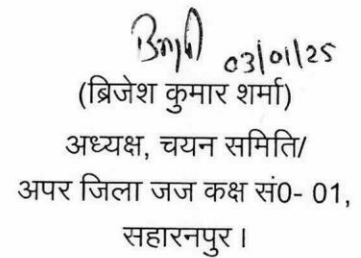 03/01/25
(ब्रिजेश कुमार शर्मा)
अध्यक्ष, चयन समिति/
अपर जिला जज कक्ष सं0- 01,
सहारनपुर।